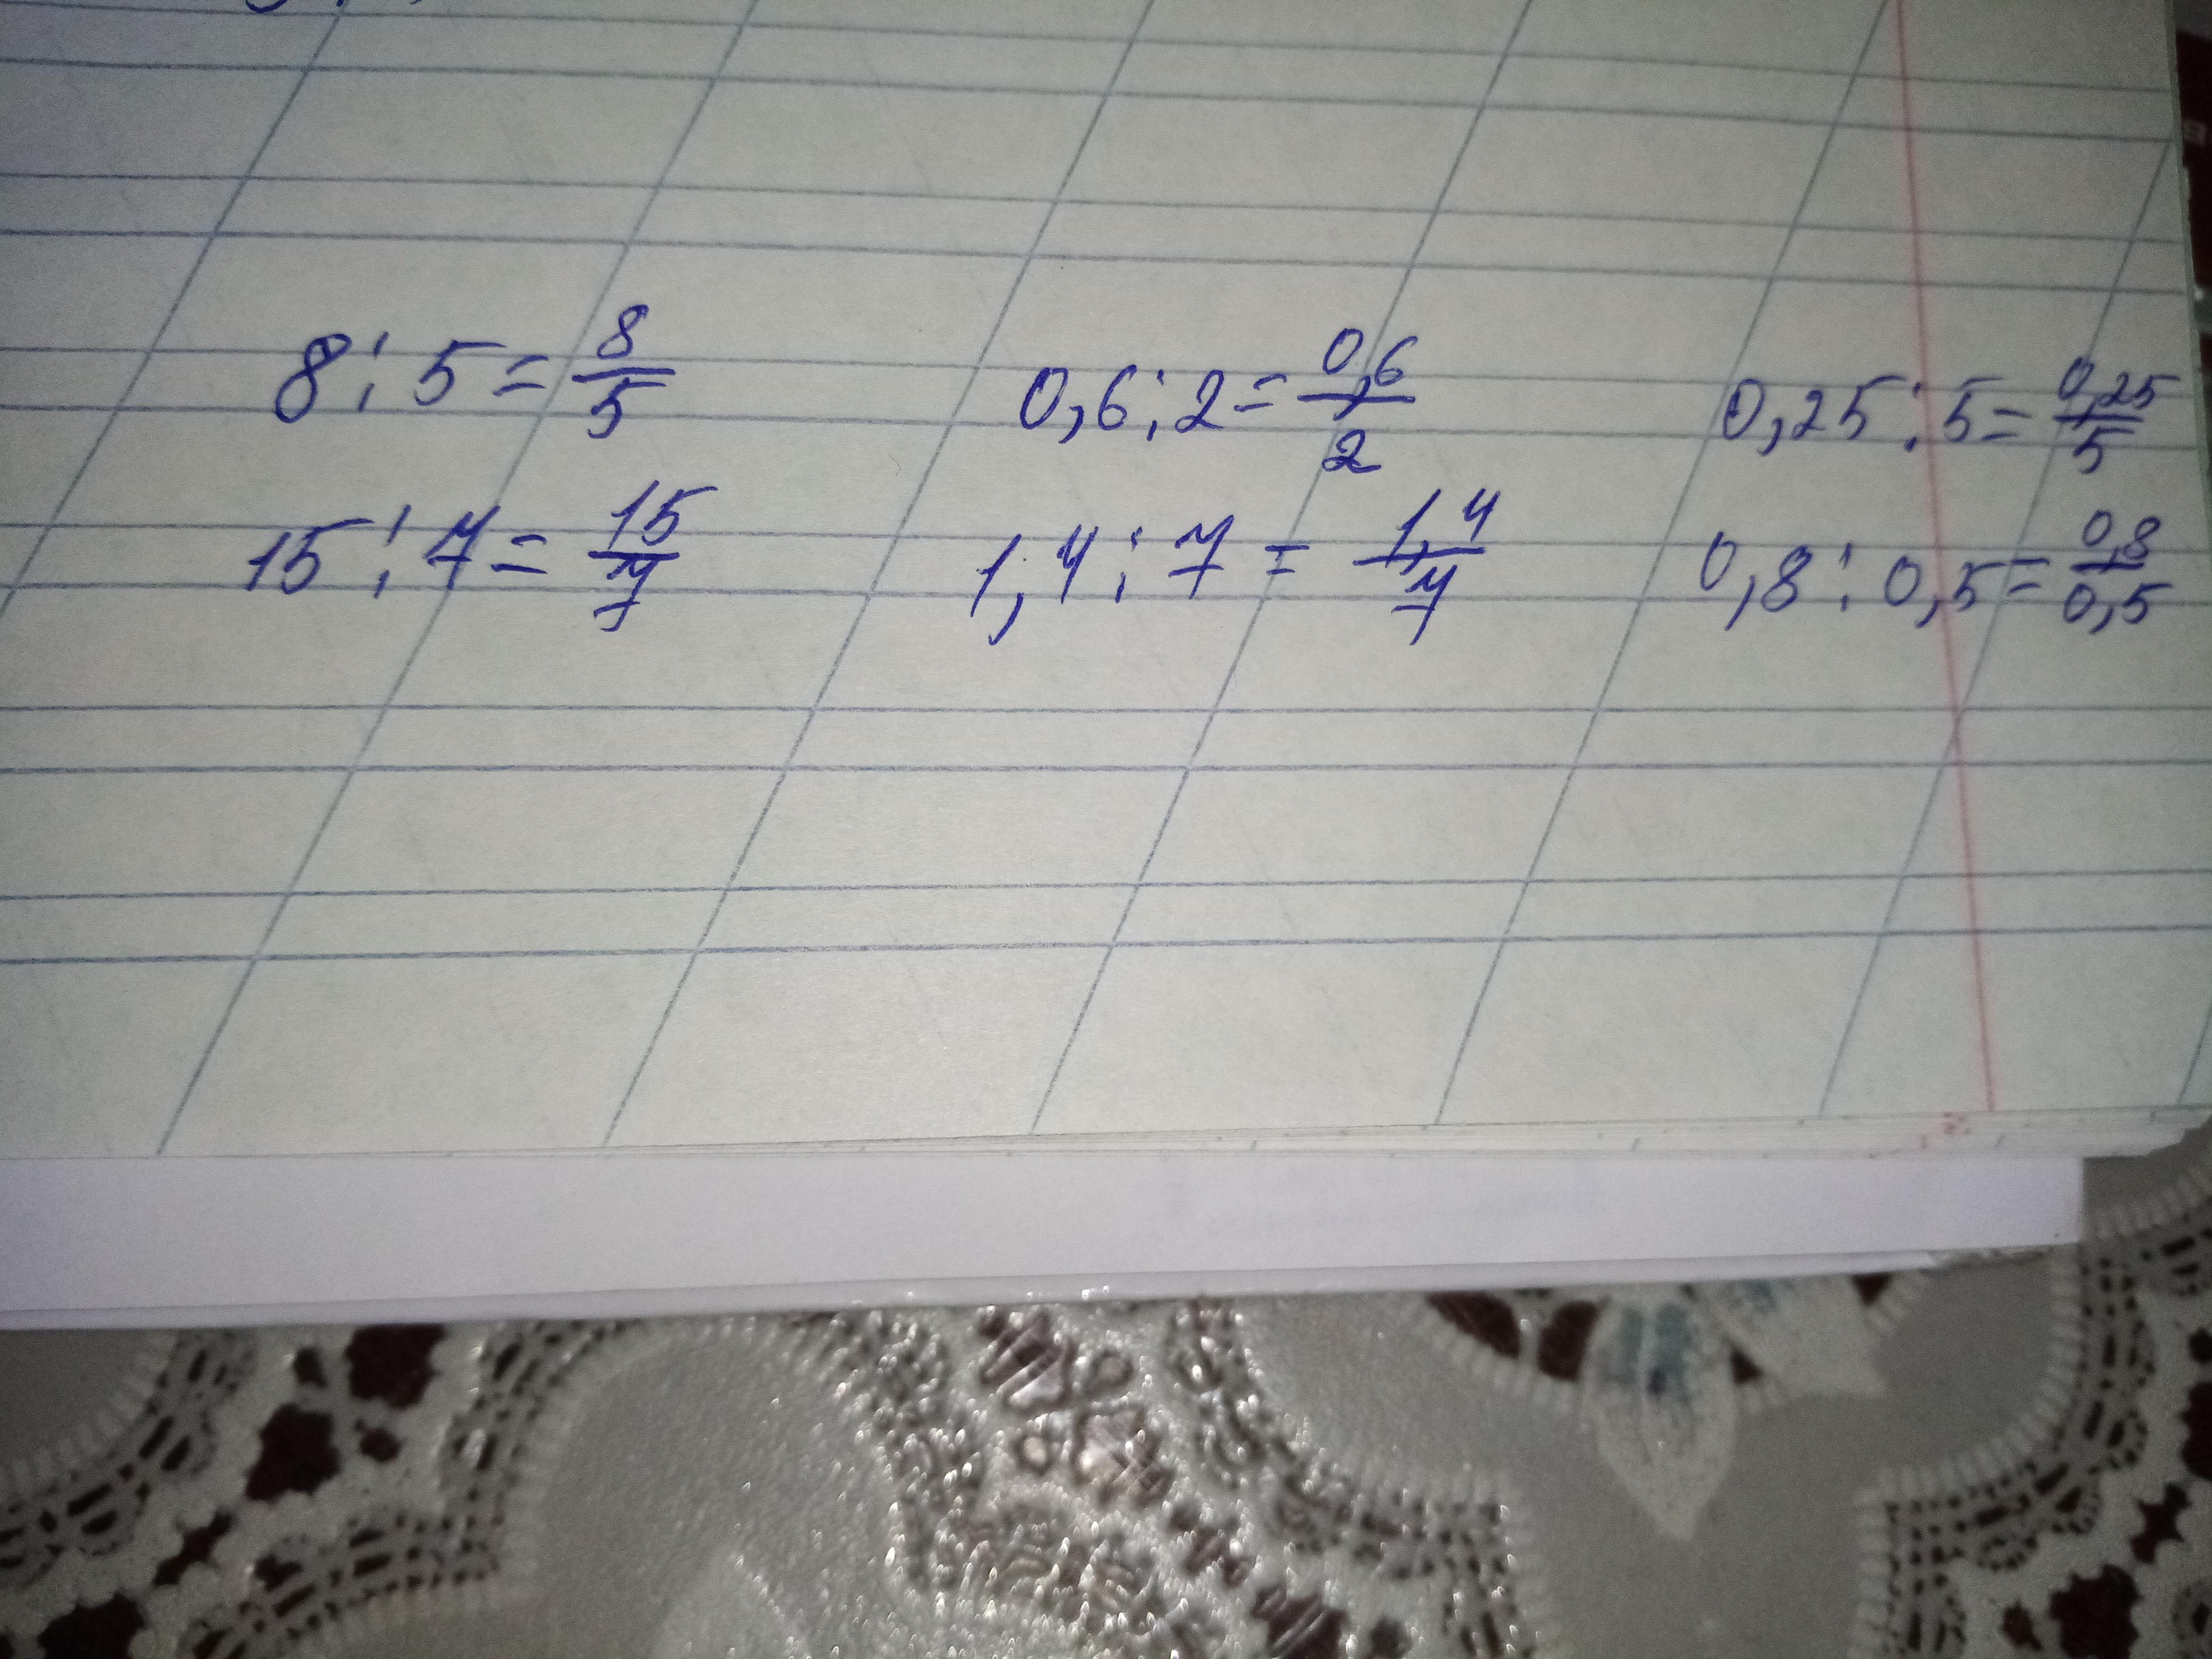 8 : 5 = 8/5 0,6 : 2 = 0,6/2 0,25 : 5 = 0,25/5
15 : 7 = 15/7 1,4 : 7 = 1,4/7 0,8 : 0,5 = 0,8/0,5